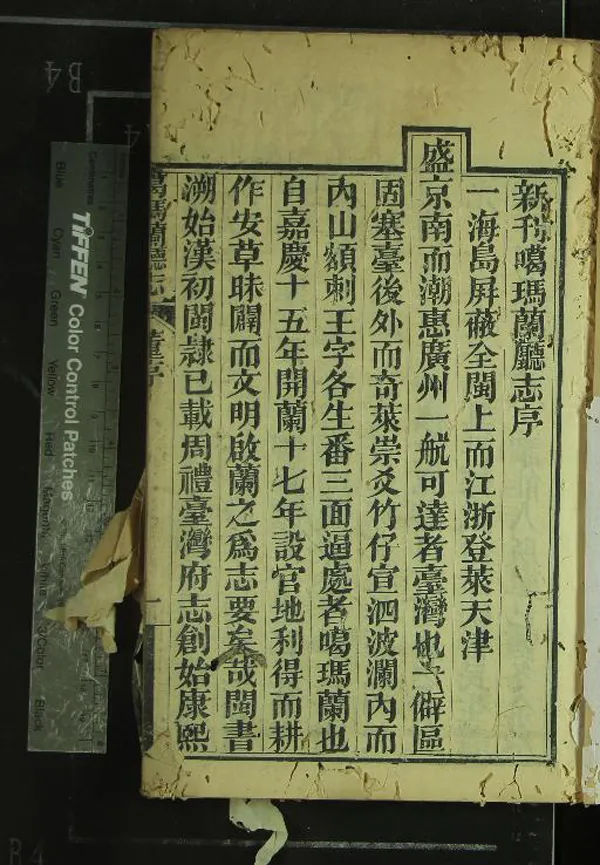 新刊噶瑪蘭廳志序
一海島屏蔽全閩上而江浙登萊天津
盛京南而潮惠廣州一航可達者臺灣也一僻區
固塞臺後外而奇萊崇爻竹仔宣泗波瀾內而
內山額刺王字各生番三面逼處者噶瑪蘭也
自嘉慶十五年開蘭十七年設官地利得而耕
作安草昧闢而文明啟蘭之為志要矣哉閩書
溯始漢初閩隸已載周禮臺灣府志創始康熙
噶瑪蘭廳志
董序
一
TIFFEN Color Control Patches
Centimetres
Blue
Cyan
Green
Yellow
Red
Magenta
White
3/Color
Black
B4
B4